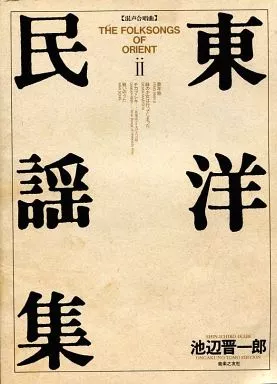 【混声合唱曲】
THE FOLKSONGS
OF
ORIENT
ii
東洋
民謡集
SHIN-ICHIRO IKEBE
池辺晋一郎
ONGAKU NO TOMO EDITION
音楽之友社